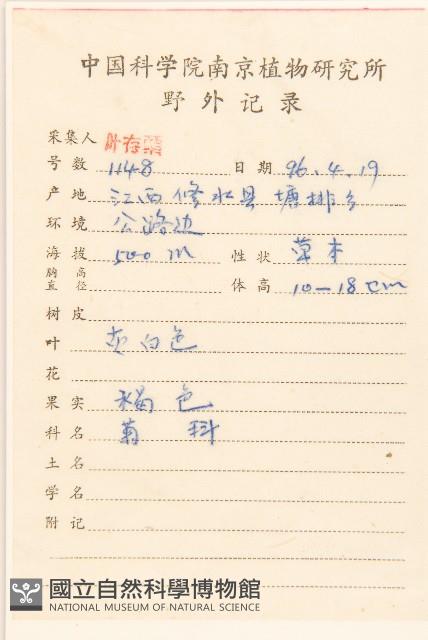 中国科学院南京植物研究所
野外记录
采集人 叶存粟
号数 1148 日期 96.4.19
产地 江西修水县塘排乡
环境 公路边
海拔 500 m 性状 草本
胸高直径 体高 10-18cm
树皮
叶 灰白色
花
果实 褐色
科名 菊科
土名
学名
附记
國立自然科學博物館
NATIONAL MUSEUM OF NATURAL SCIENCE